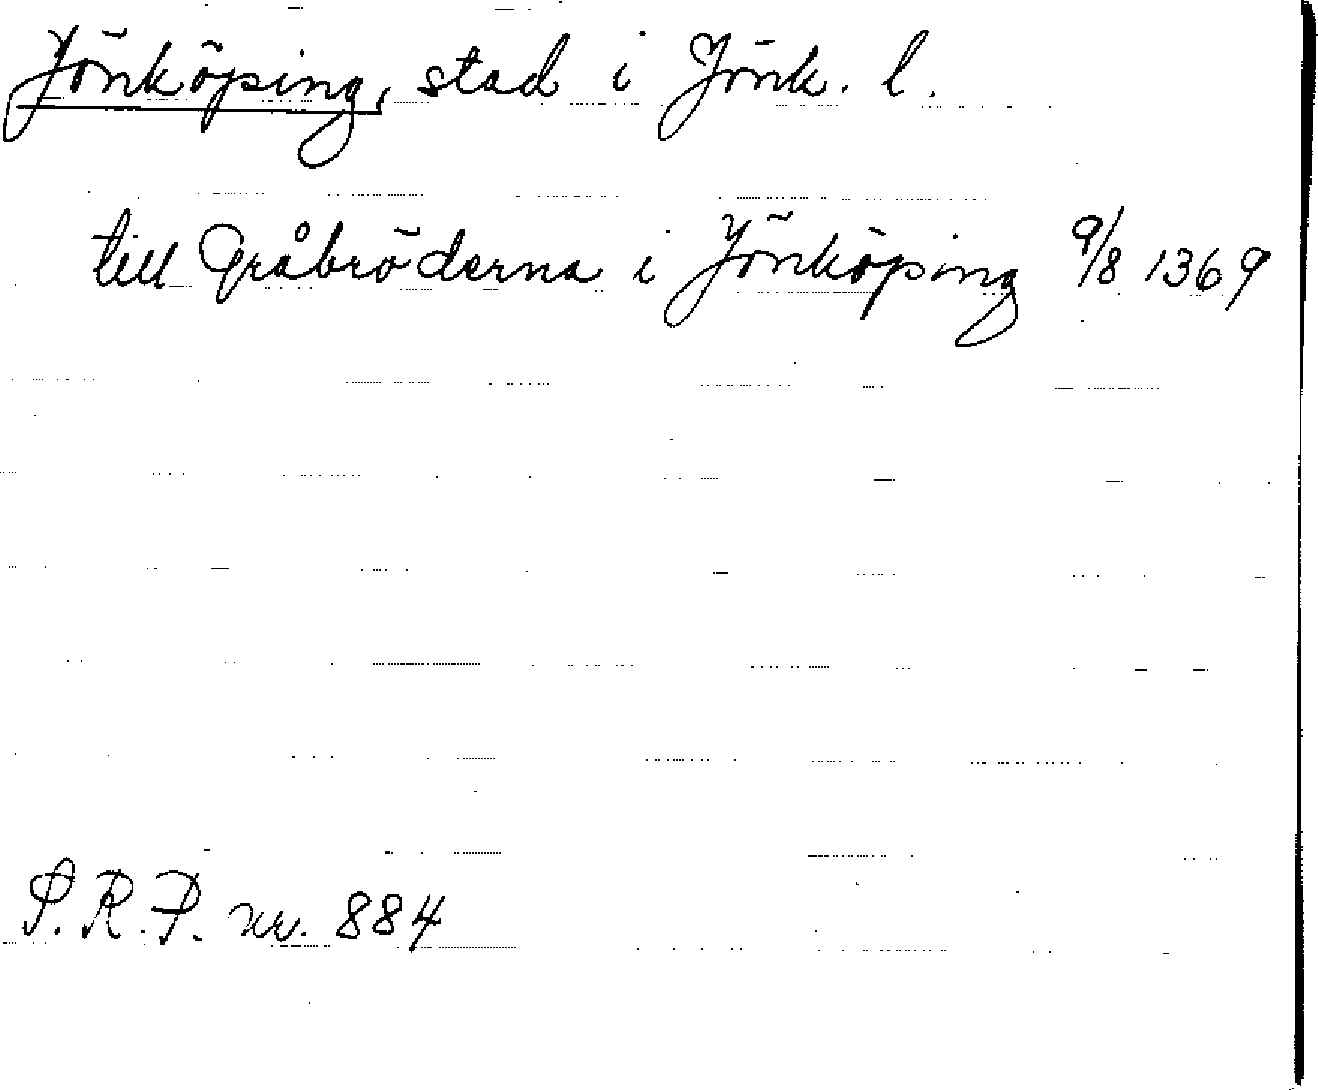 Jönköping, stad i Jönk. l.
till Gråbröderna i Jönköping 9/8 1369
S.R.P. nr. 884